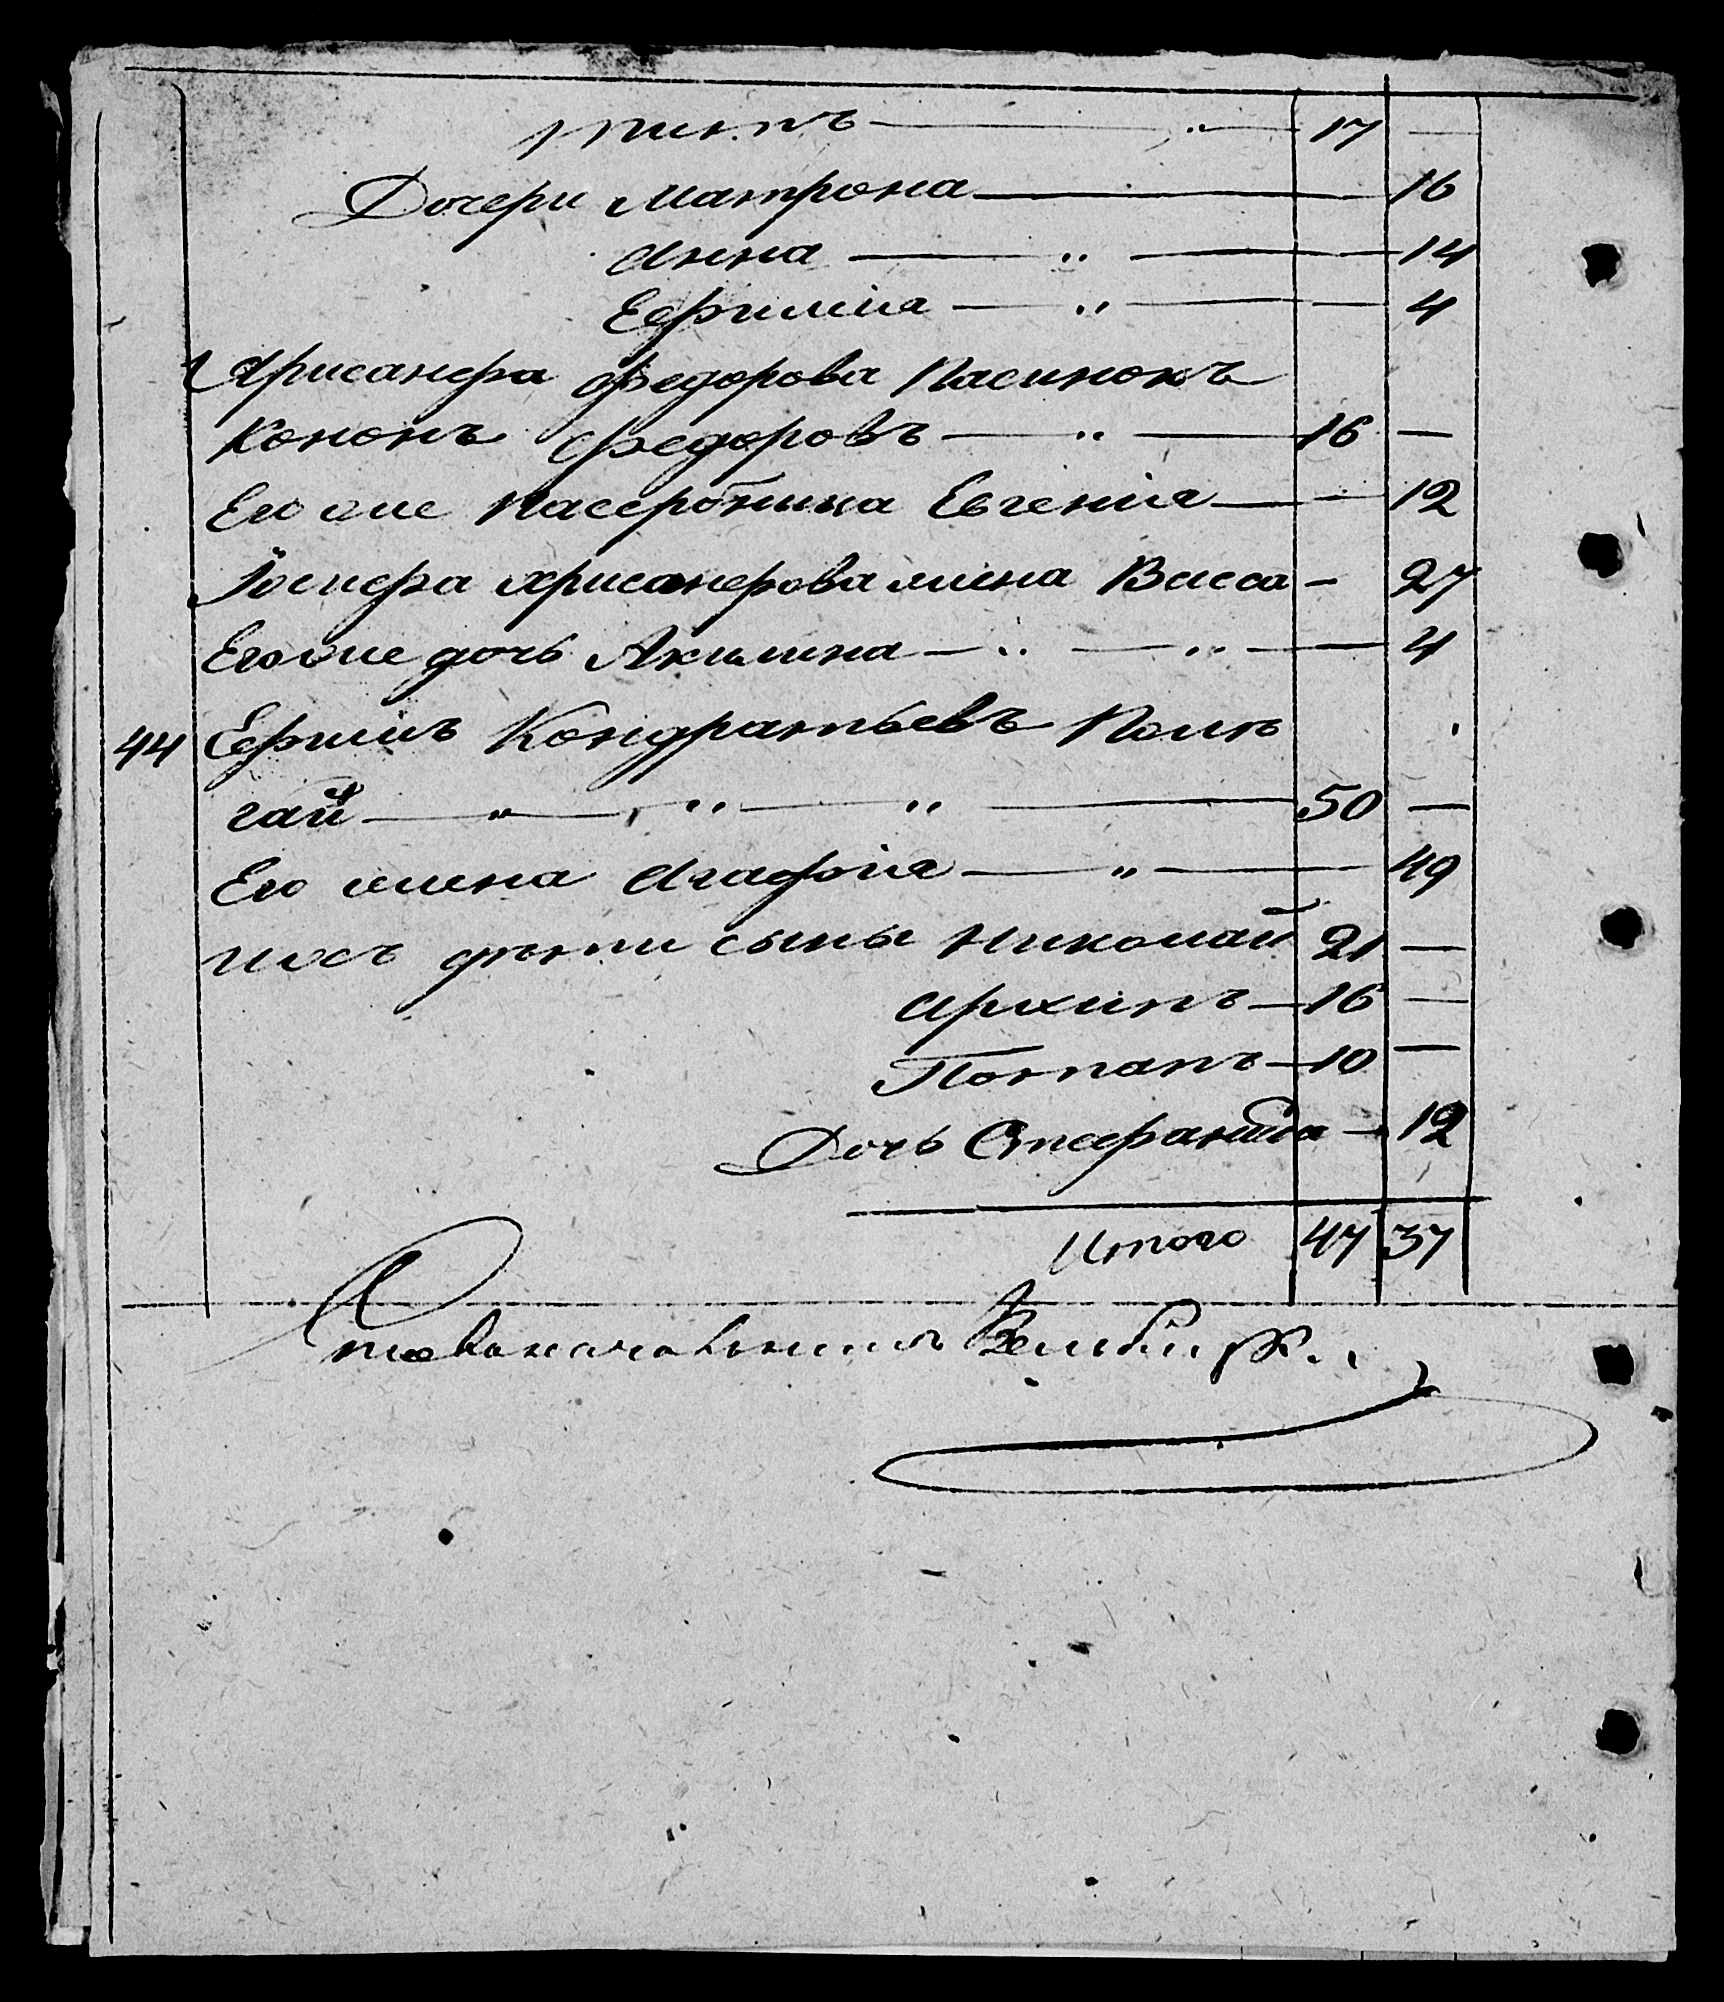 17 —
Дочери Матрона — 16
Анна — " — 14
Ефимiя — " — 4
Хрисанфа Федорова Пасинокъ
Кононъ Федоровъ — " — 16 —
Его же Пасербница Евгенiя — 12
Iосифа Хрисанфова жена Васса — 27
Его же дочь Акилина — " — " — 4
44 Ефимъ Кондратьевъ
гай — " — " — " — 50 —
Его жена Агафiя — " — 49
Ихъ дѣти сыны Николай 21 —
Архипъ — 16 —
Потапъ — 10 —
Дочь Стефанида — 12
Итого 47 37